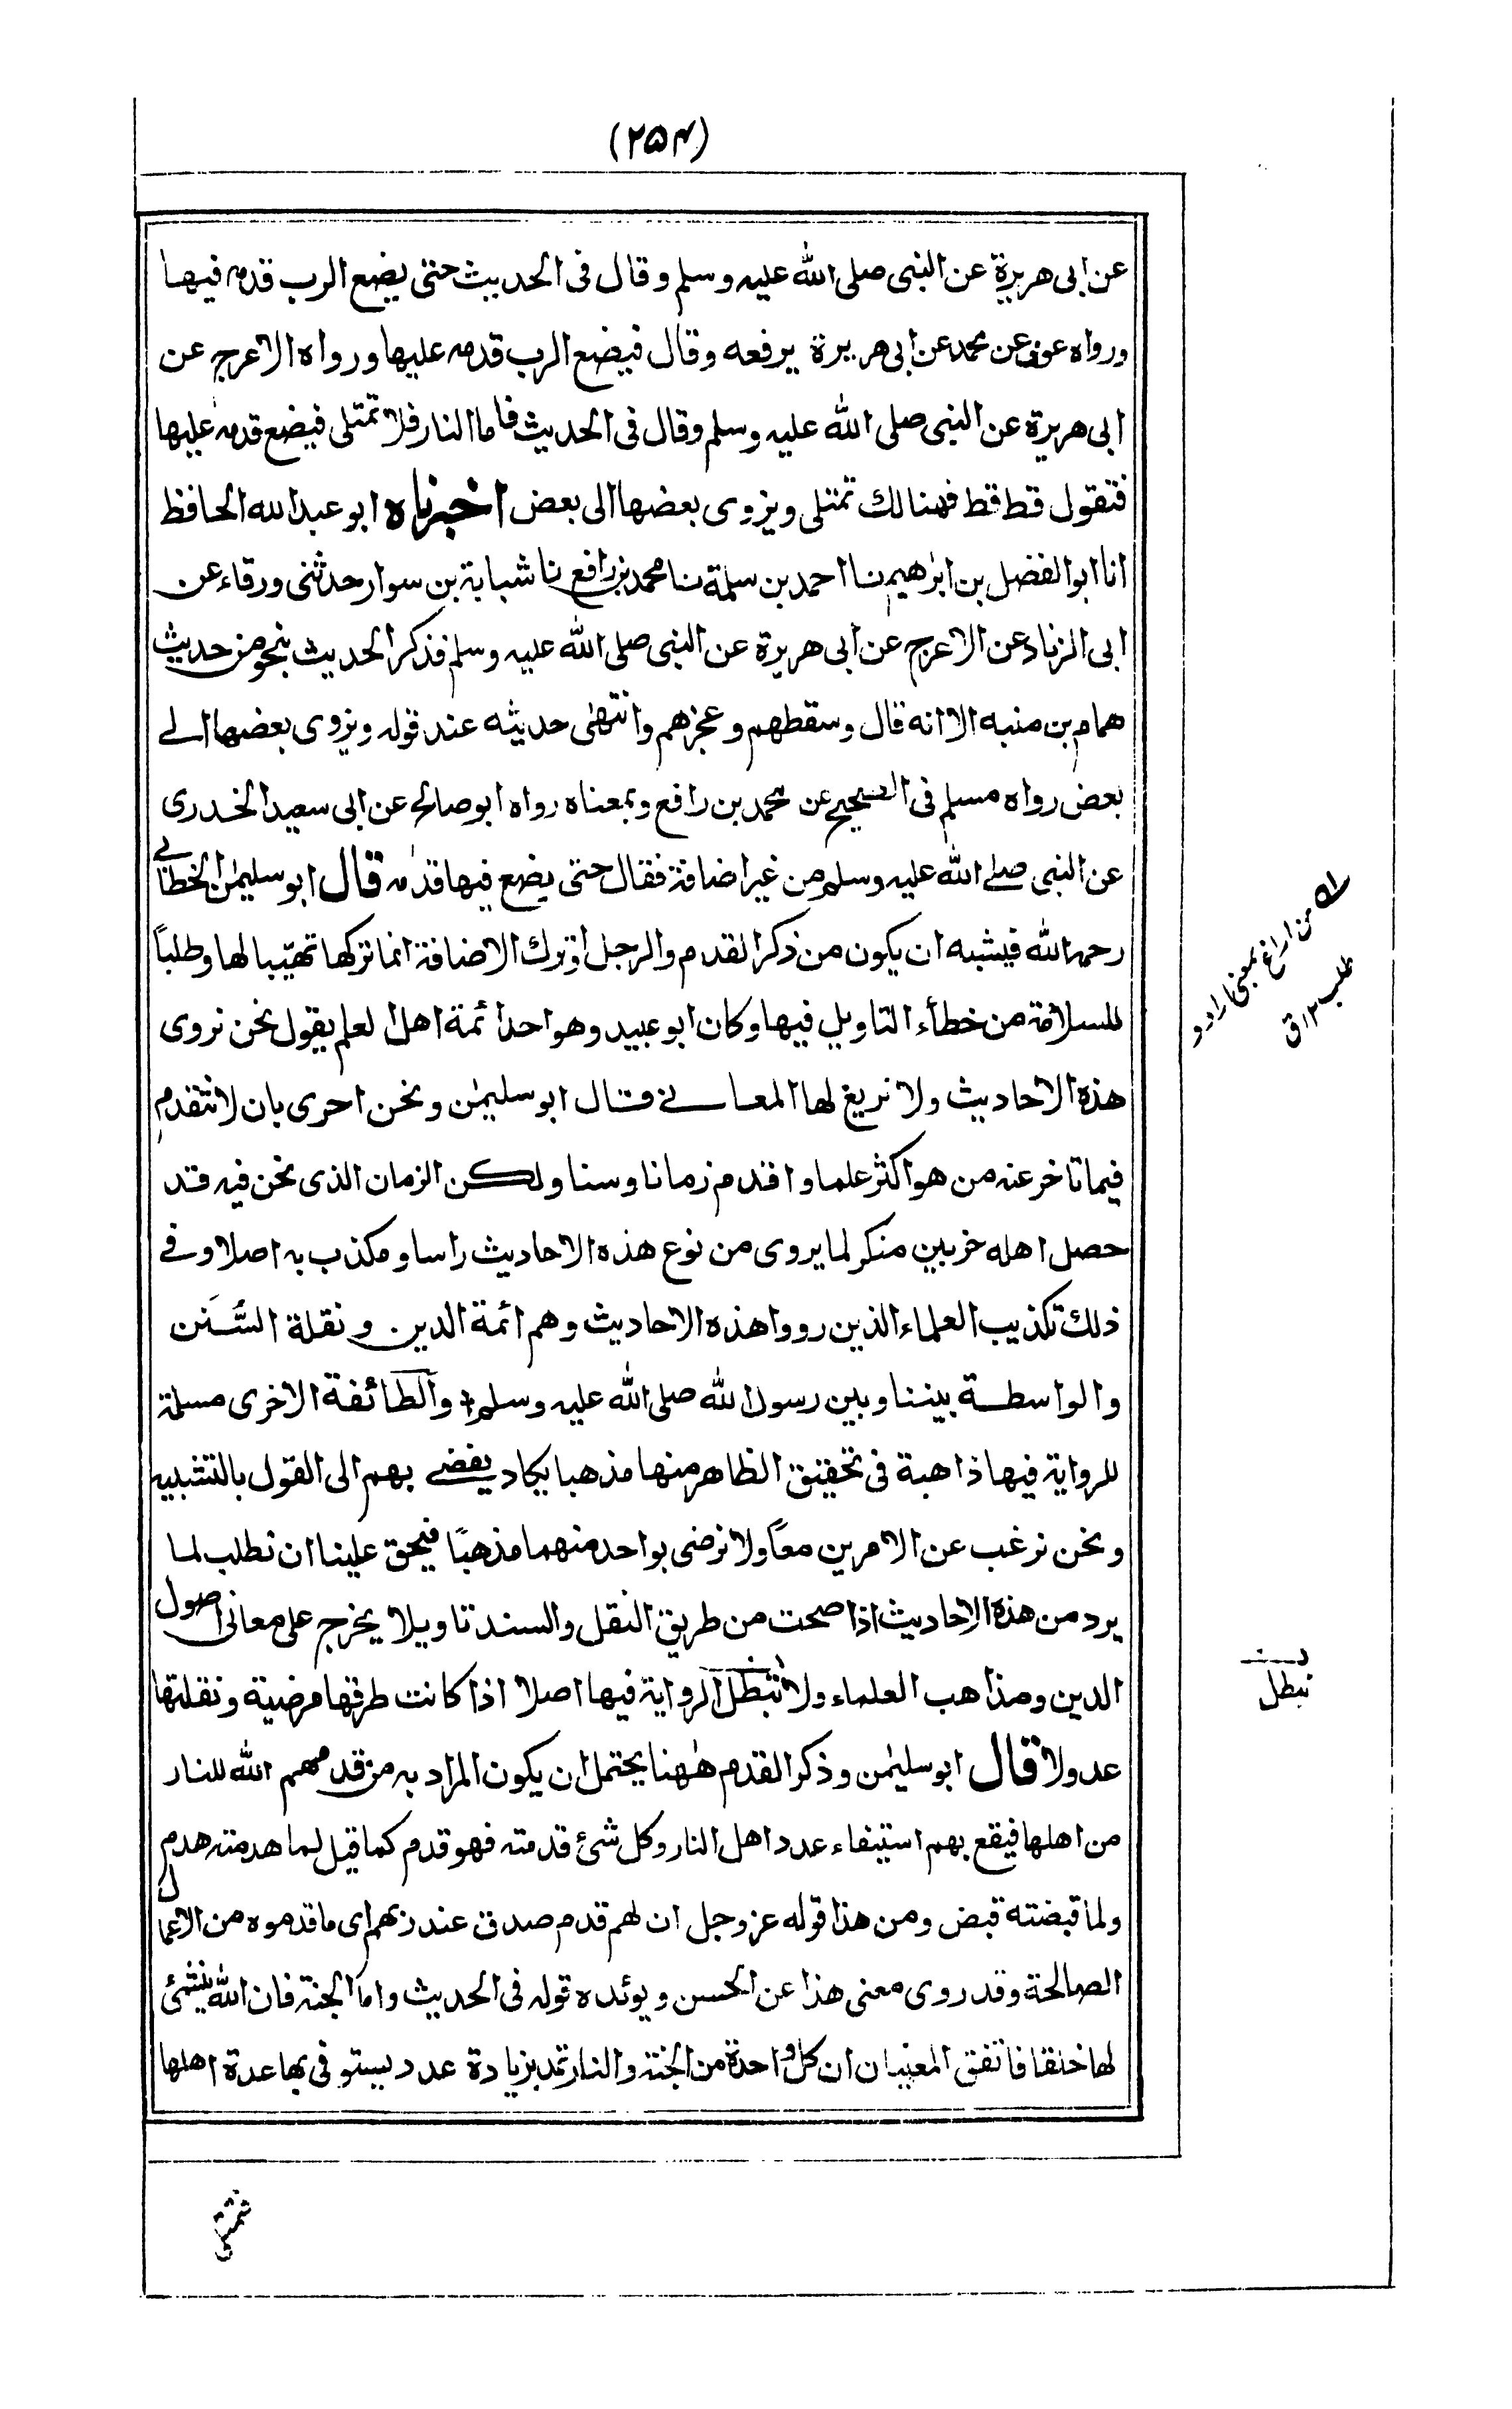 (٢٥٤)
عن ابی هریرة عن النبی صلی الله علیه وسلم وقال فی الحدیث حتی یضع الرب قدمه فیها
ورواه عوف عن محمد عن ابی هریرة یرفعه وقال فیضع الرب قدمه علیها ورواه الاعرج عن
ابی هریرة عن النبی صلی الله علیه وسلم وقال فی الحدیث فاما النار فلا تمتلی فیضع قدمه علیها
فتقول قط قط فهنالك تمتلی ویزوی بعضها الی بعض اخبرناه ابو عبد الله الحافظ
انا ابو الفضل بن ابرٰهیم نا احمد بن سلمة نا محمد بن رافع نا شبابة بن سوار حدثنی ورقاء عن
ابی الزناد عن الاعرج عن ابی هریرة عن النبی صلی الله علیه وسلم فذکر الحدیث بنحو من حدیث
همام بن منبه الا انه قال وسقطهم وعجزهم وانتهٰی حدیثه عند قوله ویزوی بعضها الے
بعض رواه مسلم فی الصحیح عن محمد بن رافع وبمعناه رواه ابو صالح عن ابی سعید الخدری
عن النبی صلے الله علیه وسلم من غیر اضافة فقال حتی یضع فیها قدمه قال ابو سلیمٰن الخطابے
رحمه الله فیشبه ان یکون من ذکر القدم والرجل او ترك الاضافة انما ترکها تهیّبا لها وطلباً
للسلامة من خطأء التاویل فیها وکان ابو عبید وهو احد ائمة اهل العلم یقول نحن نروی
هذه الاحادیث ولا نریغ لها المعانے قال ابو سلیمٰن ونحن احری بان لا نتقدم
فیما تاخر عنه من هو اکثر علما واقدم زمانا وسنا ولکن الزمان الذی نحن فیه قد
حصل اهله حزبین منکر لما یروی من نوع هذه الاحادیث راسا ومکذب به اصلا وفے
ذلك تکذیب العلماء الذین رووا هذه الاحادیث وهم ائمة الدین ونقلة السُّنَن
والواسطة بیننا وبین رسول الله صلی الله علیه وسلم والطائفة الاخری مسلمة
للروایة فیها ذاهبة فی تحقیق الظاهر منها مذهبا یکاد یفضے بهم الی القول بالتشبیه
ونحن نرغب عن الامرین معاً ولا نرضی بواحد منهما مذهبًا فیحق علینا ان نطلب لما
یرد من هذه الاحادیث اذا صحت من طریق النقل والسند تاویلا یخرج علی معانی اصول
الدین ومذاهب العلماء ولا تبطل الروایة فیها اصلا اذا کانت طرقها مرضیة ونقلتها
عدولا قال ابو سلیمٰن وذکر القدم هٰهنا یحتمل ان یکون المراد به من قدمهم الله للنار
من اهلها فیقع بهم استیفاء عدد اهل النار وکل شئ قدمته فهو قدم کما قیل لما هدمته هدم
ولما قبضته قبض ومن هذا قوله عز وجل ان لهم قدم صدق عند ربهم ای ما قدموه من الاعمال
الصالحة وقد روی معنی هذا عن الحسن ویوئده قوله فی الحدیث واما الجنة فان الله ینشئ
لها خلقا فاتفق المعنیان ان کل واحدة من الجنة والنار تمد بزیادة عدد یستوفی بها عدة اهلها
من اراغ بمعنی اراد و
طلب ١٢ ق
نبطل